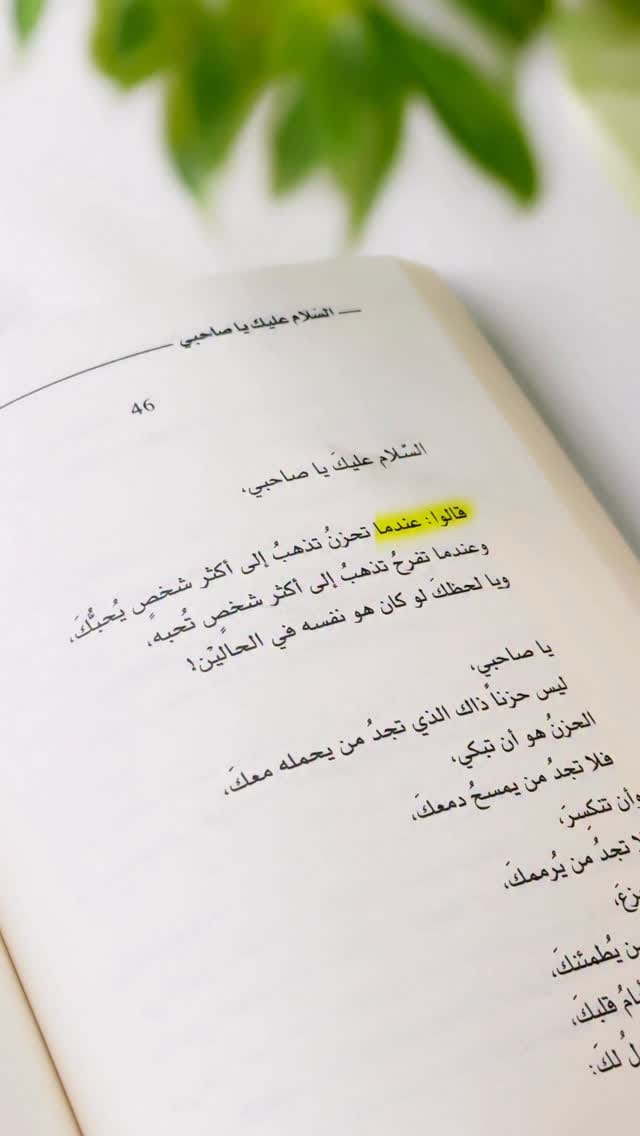 السّلام عليك يا صاحبي
46
السّلام عليكَ يا صاحبي،
قالوا: عندما تحزنُ تذهبُ إلى أكثر شخصٍ يُحبُّكَ،
وعندما تفرحُ تذهبُ إلى أكثر شخصٍ تُحبه،
ويا لحظكَ لو كان هو نفسه في الحاليْن!
يا صاحبي،
ليس حزناً ذاك الذي تجدُ من يحمله معكَ،
الحزنُ هو أن تبكي،
فلا تجدُ من يمسحُ دمعكَ،
وأن تنكسِرَ،
تجدُ من يُرممكَ،
يُطمئنكَ،
قلبكَ،
لكَ: